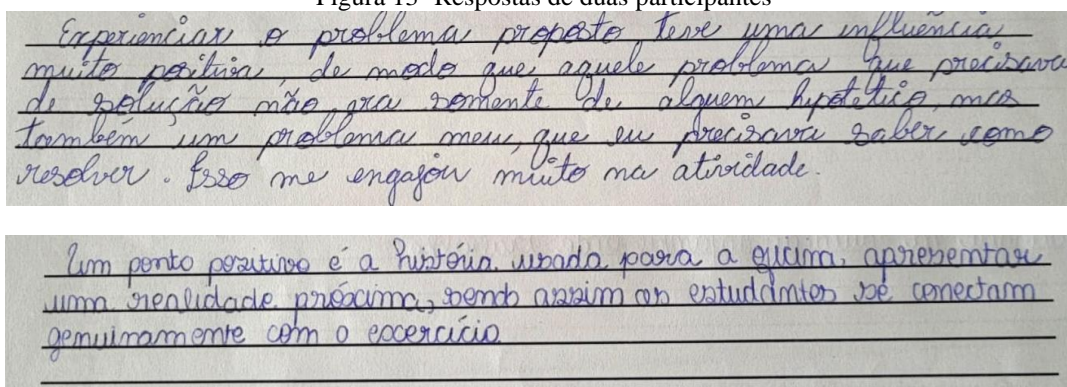 Figura 13- Respostas de duas participantes
Experienciar o problema proposto, teve uma influência
muito positiva, de modo que, aquele problema que precisava
de solução não era somente de alguem hipotético, mas
também um problema meu, que eu precisava saber como
resolver. Isso me engajou muito na atividade.
Um ponto positivo é a história usada para a apresentar
uma realidade próxima, sendo assim os estudantes se conectam
genuinamente com o excercício